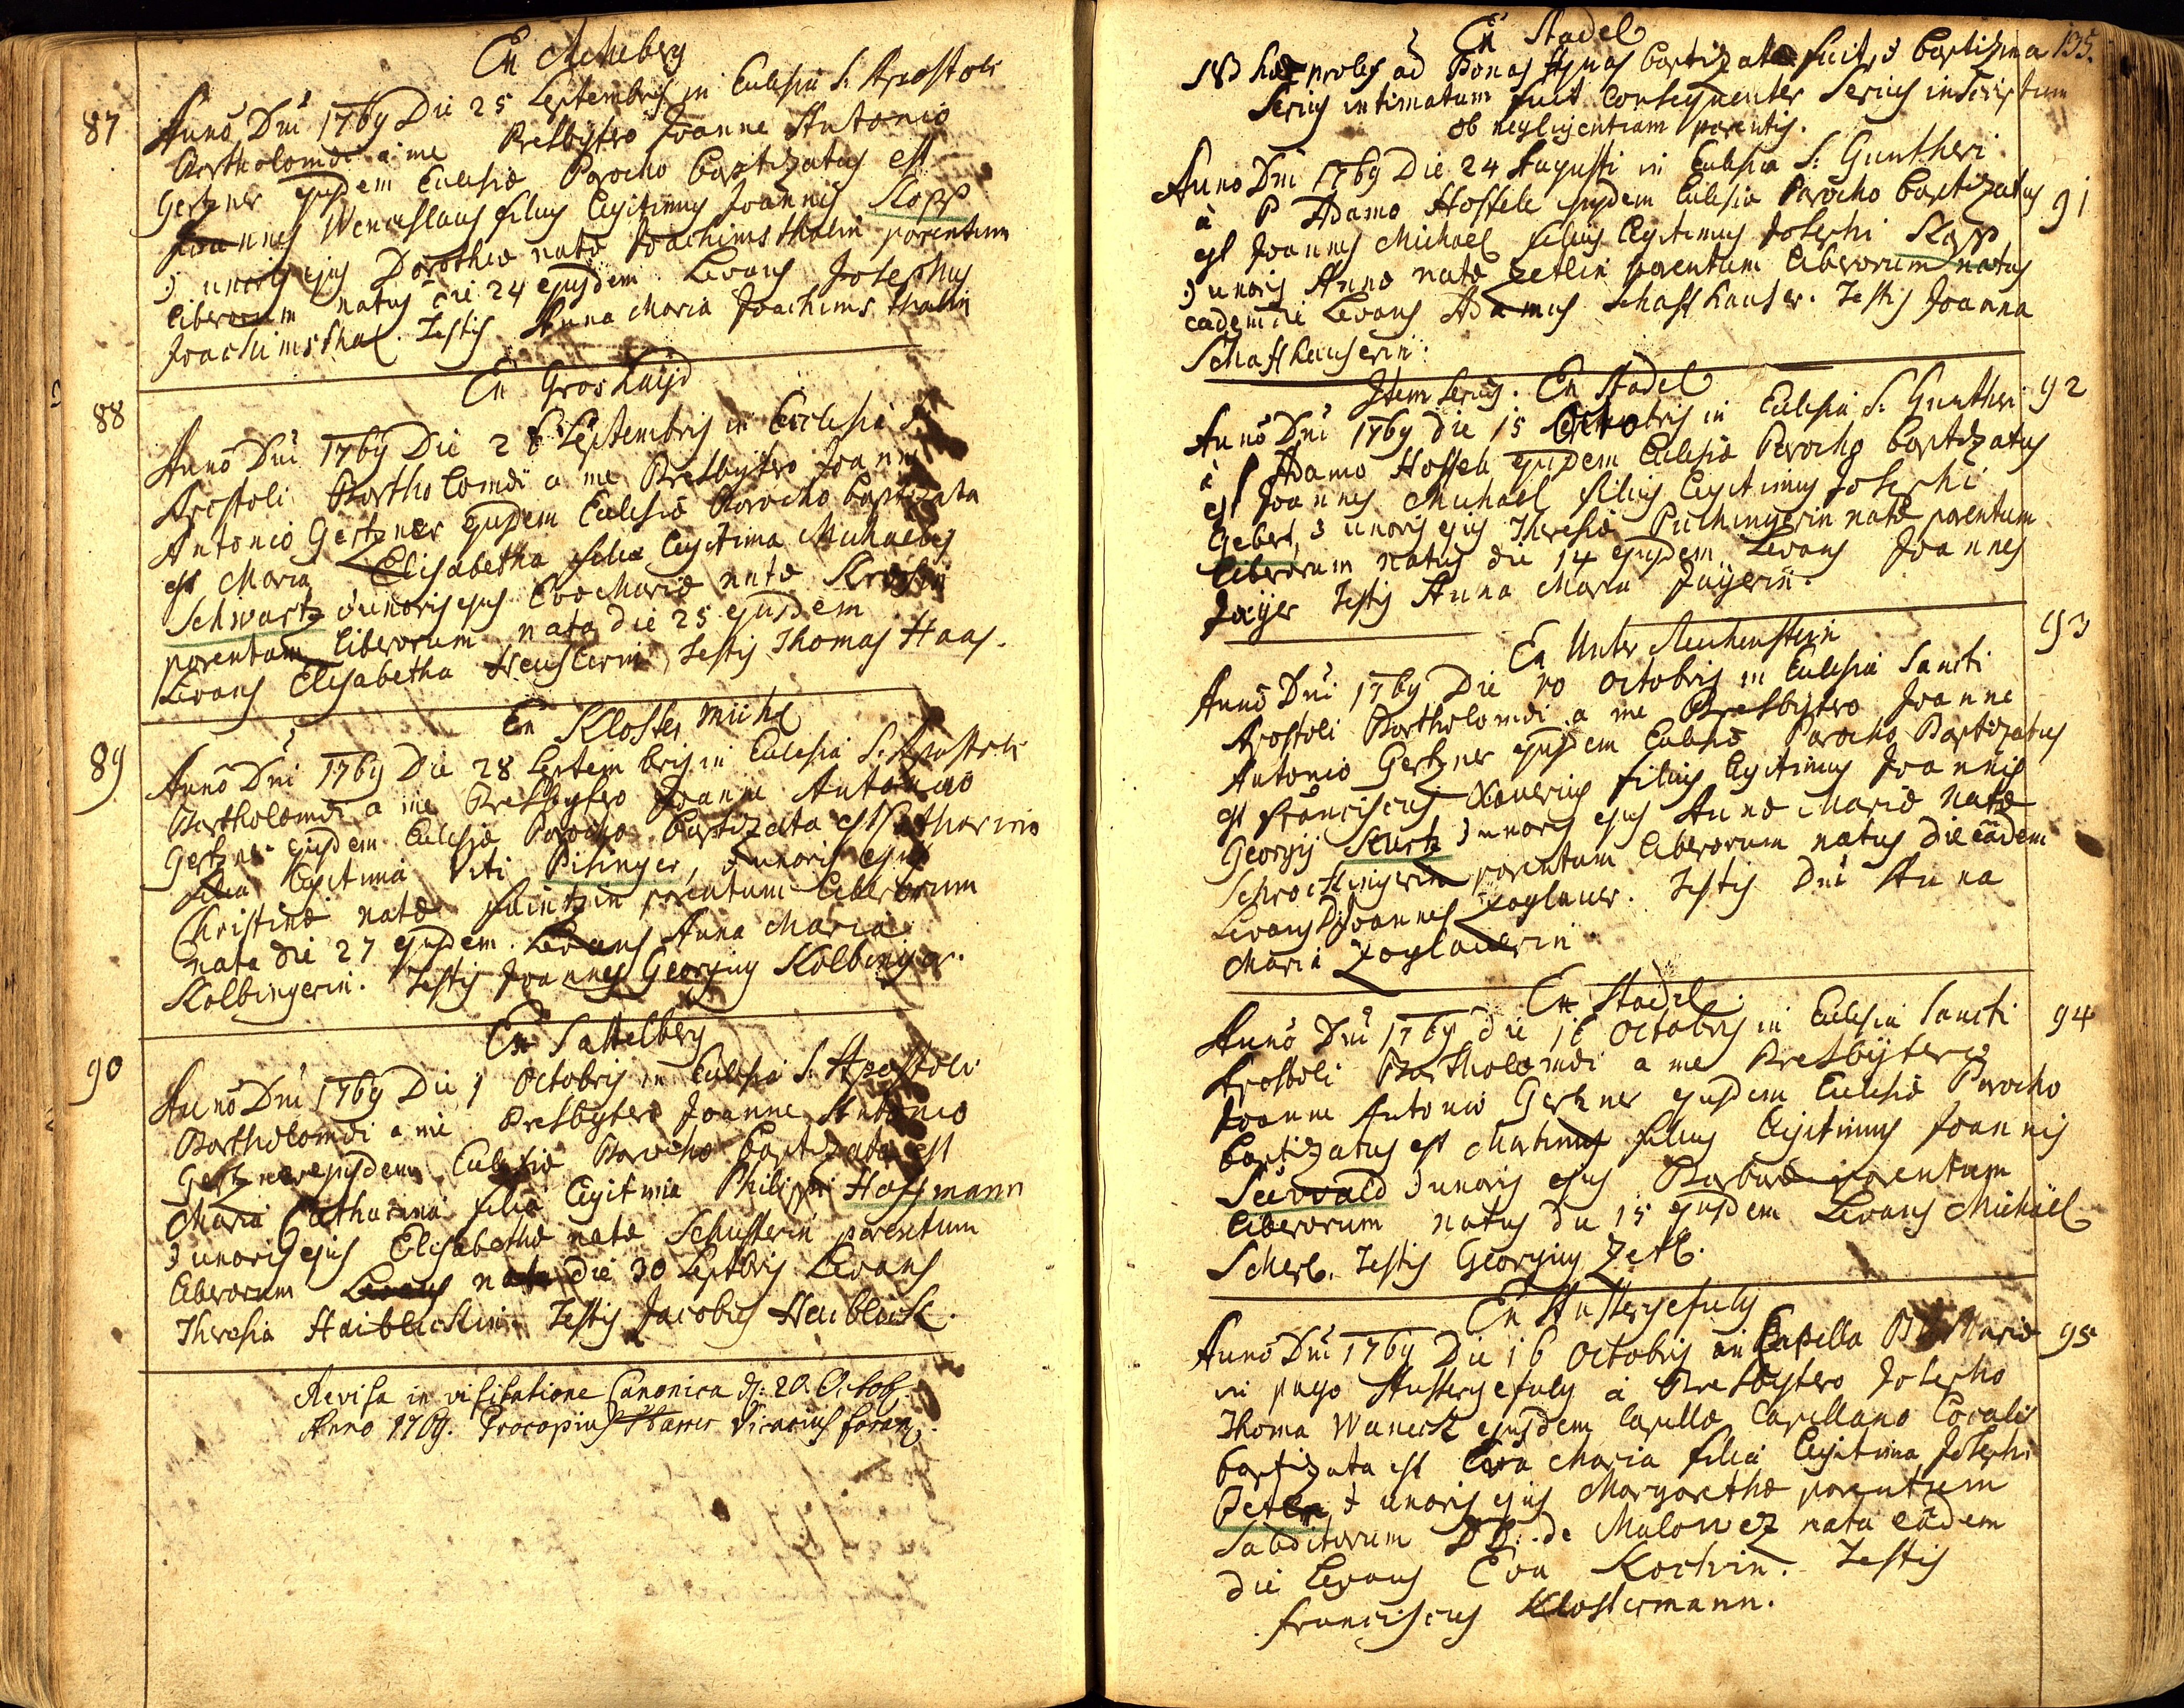 87
Anno Dni 1769 Die 25 Septembris in Eulesia S. Apostoli
Bartholomæi a me Presbytero Joanne Antonio
Gertzner ejusdem Eulesiæ Parocho baptizatus est
Joannes Wenceslaus filius legitimus Joannis Kopp
& uxoris ejus Dorotheæ natæ Joachimsthalin parentum
liberorum natus die 24 ejusdem. Levans Josephus
Joachimsthal. Testis Anna Maria Joachimsthalin
Ex Gros Haÿd
88
Anno Dni 1769 Die 28 Septembris in Ecclesia S.
Apostoli Bartholomæi a me Presbytero Joanne
Antonio Gertzner ejusdem Eulesiæ Parocho baptizata
est Maria Elisabetha filia legitima Michaelis
Schwartz & uxoris ejus Evæ Mariæ natæ
parentum liberorum nata die 25 ejusdem
Levans Elisabetha Testis Thomas Haas.
Ex Kloster Mihl
89
Anno Dni 1769 Die 28 Septembris in Eulesia S. Apostoli
Bartholomæi a me Presbytero Joanne Antonio
Gertzner ejusdem Eulesiæ Parocho baptizata est Catharina
filia legitima Viti Pisinger, & uxoris ejus
Christinæ natæ parentum liberorum
nata die 27 ejusdem. Levans Anna Maria
Kolbingerin. Testis Joannes Georgius Kolbinger.
Ex Sattelberg
90
Anno Dni 1769 Die 1 Octobris in Eulesia S. Apostoli
Bartholomæi a me Presbytero Joanne Antonio
Gertzner ejusdem Eulesiæ Parocho baptizata est
Maria Catharina filia legitima Philippi Hoffmann
& uxoris ejus Elisabethæ natæ Schusterin parentum
liberorum Levans nata die 30 Septbris Levans
Theresia Haiblickin. Testis Jacobus Heiblick.
Revisa in visitatione Canonica d: 20. Octob.
Anno 1769. Procopius Vicarius foran.
Ex Stadel
135.
NB hæc proles ad Bonas Aquas baptizata fuit, & baptisma
serius intimatum fuit consequenter serius inscriptum
ob negligentiam parentis.
Anno Dni 1769 Die 24 Augusti in Eulesia S: Guntheri
91
à P Adamo Hossele ejusdem Eulesiæ Parocho baptizatus
est Joannes Michaël filius legitimus Josephi Kopp
& uxoris Annæ natæ Zetlin parentum liberorum natus
eadem die Levans Adamus Schaffhauser. Testis Joanna
Schaffhauserin.
Item serius. Ex Stadel
92
Anno Dni 1769 die 15 Octobris in Eulesia S. Guntheri
à P Adamo Hossele ejusdem Eulesiæ Parocho baptizatus
est Joannes Michaël filius legitimus Josephi
Gebert, & uxoris ejus Theresiæ Puchingerin natæ parentum
liberorum natus die 14 ejusdem Levans Joannes
Jaÿer Testis Anna Maria Jaÿerin.
Ex Unter Reichenstein
93
Anno Dni 1769 Die 10 Octobris in Eulesia Sancti
Apostoli Bartholomæi a me Presbytero Joanne
Antonio Gertzner ejusdem Eulesiæ Parocho Baptizatus
est Franciscus Xaverius filius legitimus Joannis
Georgij Kurtz & uxoris ejus Annæ Mariæ natæ
Schroetlingerin parentum liberorum natus die eâdem
Levans D. Joannes Zoglauer. Testis Dna Anna
Maria Zoglauerin.
Ex Stadel
94
Anno Dni 1769 die 16 Octobris in Eulesia Sancti
Apostoli Bartholomæi a me Presbÿtero
Joanne Antonio Gertzner ejusdem Eulesiæ Parocho
baptizatus est Martinus filius legitimus Joannis
Seewald & uxoris ejus Barbaræ parentum
liberorum natus die 15 ejusdem Levans Michaël
Scherl. Testis Georgius Zetl.
Ex Stustergefuly
95
Anno Dni 1769 Die 16 Octobris in Capella B V Mariæ
in pago Stustergefuly à Presbytero Josepho
Thoma Waneck ejusdem Capellæ Capellano Locali
baptizata est Eva Maria filia legitima Josephi
Peter & uxoris ejus Margarethæ parentum
subditorum DD: de Malowez nata eâdem
die Levans Eva Kochin. Testis
Franciscus Klostermann.